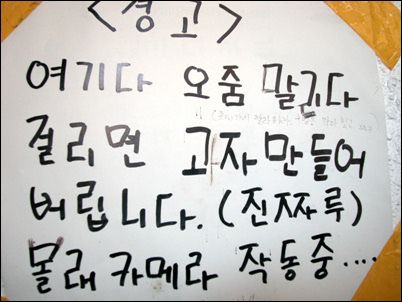 <경고>
여기다 오줌 말기다
걸리면 고자만들어
버립니다. (진짜루)
몰래카메라 작동중....